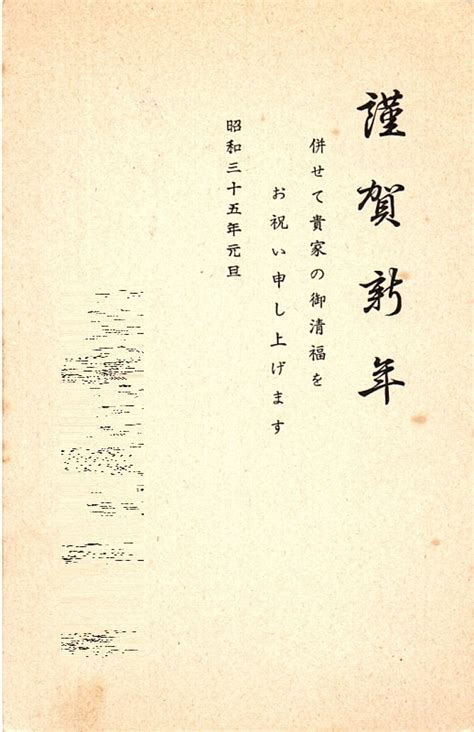 謹賀新年
併せて貴家の御清福を
お祝い申し上げます
昭和三十五年元旦